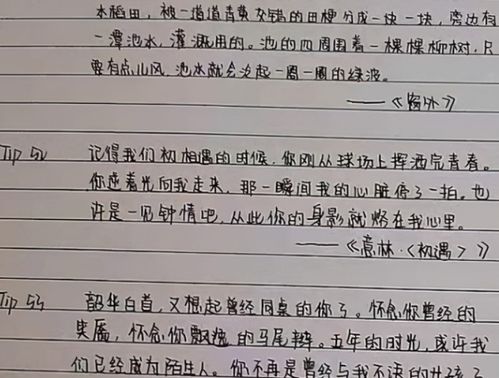 水稻田，被一道道青黄交错的田埂分成一块一块，旁边有
一潭池水，灌溉用的。池的四周围着一棵棵柳树，只
要有点山风，池水就会泛起一圈一圈的绿波。
——《窗外》
Tip 52 记得我们初相遇的时候，你刚从球场上挥洒完青春。
你逆着光向我走来，那一瞬间我的心脏停了一拍。也
许是一见钟情吧，从此你的身影就烙在我心里。
——《意林·<初遇>》
Tip 53 韶华白首，又想起曾经同桌的你了。怀念你曾经的
笑靥，怀念你飘逸的马尾辫。五年的时光，或许我
们已经成为陌生人。你不再是曾经与我不